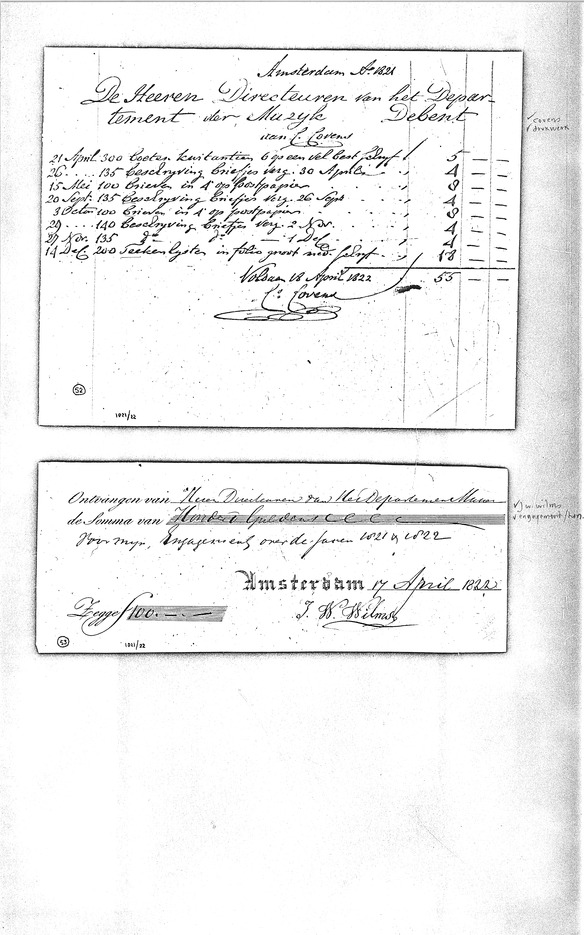 Amsterdam Ao. 1821
De Heeren Directeuren van het Depar-
tement der Muzyk Debent
aan C. Covens
covens
drukwerk
21 April 300 kwitantien 6 op een vel best 5 — —
26 .. 135 beschryving briefjes verg. 30 April 4 — —
15 Mei 100 brieven in 4o op postpapier 8 — —
20 Sept. 135 beschryving briefjes verg. 26 Sept 4 — —
3 Octob 100 brieven in 4o op postpapier 8 — —
29 .. 140 beschryving briefjes verg. 2 Nov. 4 — —
27 Nov. 135 do do — 1 Dec 4 — —
14 Dec 200 Teekenlysten in folio groot med. 18 — —
Voldaan 18 April 1822 55 — —
Cs. Covens
52
1821/22
Ontvangen van Heeren Directeuren van Het Departement Muziek
de Somma van Hondert Guldens
J.W. wilms
engagement/hon.
Voor myn, Engagement over de Jaren 1821 & 1822
Amsterdam 17 April 1822
Zegge f 100. — . —
J. W. Wilms
53
1821/22